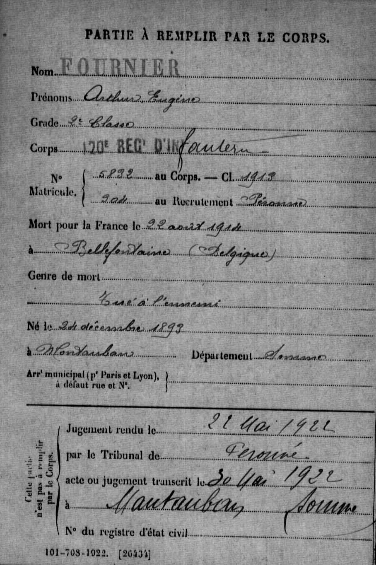 PARTIE À REMPLIR PAR LE CORPS.
Nom FOURNIER
Prénoms Arthur Eugène
Grade 2e Classe
Corps 120E REGt D'INfanterie
No 5832 au Corps. — Cl. 1913
Matricule. 204 au Recrutement Péronne
Mort pour la France le 22 août 1914
à Bellefontaine (Belgique)
Genre de mort
Tué à l'ennemi
Né le 24 décembre 1893
à Montauban Département Somme
Arrt municipal (pr Paris et Lyon),
à défaut rue et No.
Cette partie
n'est pas à remplir
par le Corps.
Jugement rendu le 22 Mai 1922
par le Tribunal de Péronne
acte ou jugement transcrit le 30 Mai 1922
à Montauban Somme
No du registre d'état civil
101-708-1922. [26434]